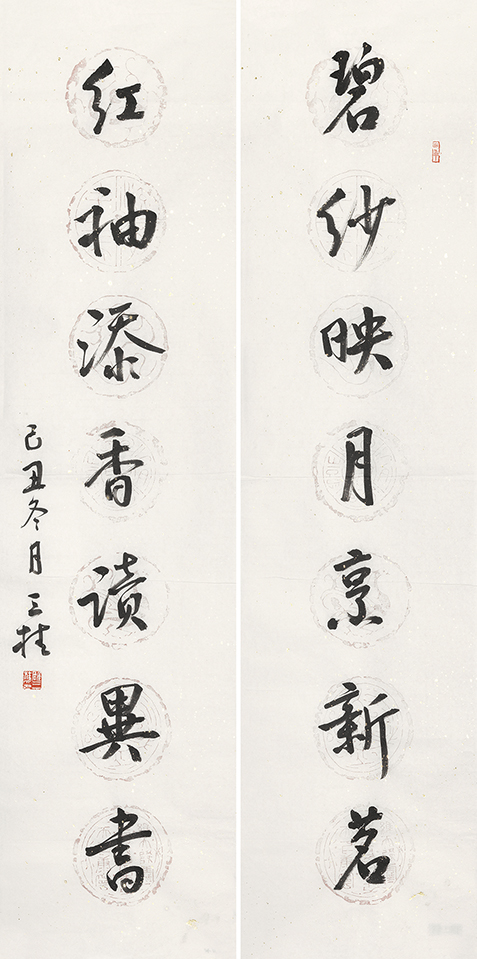 碧纱映月烹新茗
红袖添香读異书
己丑冬月 三桂